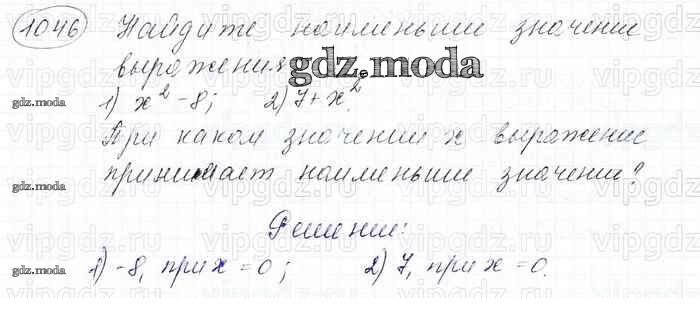 1046 Найдите наименьшее значение
выражения gdz.moda
gdz.moda 1) x² - 8; 2) 7 + x².
При каком значении x выражение
gdz.moda принимает наименьшее значение?
Решение:
gdz.moda 1) -8, при x = 0; 2) 7, при x = 0.